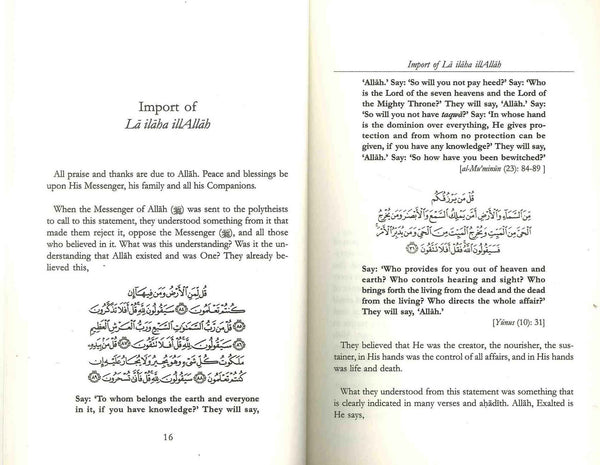 Import of
Lā ilāha illAllāh
All praise and thanks are due to Allāh. Peace and blessings be
upon His Messenger, his family and all his Companions.
When the Messenger of Allāh (ﷺ) was sent to the polytheists
to call to this statement, they understood something from it that
made them reject it, oppose the Messenger (ﷺ), and all those
who believed in it. What was this understanding? Was it the un-
derstanding that Allāh existed and was One? They already be-
lieved this,
قُل لِّمَنِ ٱلْأَرْضُ وَمَن فِيهَآ إِن
كُنتُمْ تَعْلَمُونَ ﴿٨٤﴾ سَيَقُولُونَ لِلَّهِ قُلْ أَفَلَا تَذَكَّرُونَ
﴿٨٥﴾ قُلْ مَن رَّبُّ ٱلسَّمَٰوَٰتِ ٱلسَّبْعِ وَرَبُّ ٱلْعَرْشِ ٱلْعَظِيمِ
﴿٨٦﴾ سَيَقُولُونَ لِلَّهِ قُلْ أَفَلَا تَتَّقُونَ ﴿٨٧﴾ قُلْ مَنۢ بِيَدِهِۦ
مَلَكُوتُ كُلِّ شَىْءٍ وَهُوَ يُجِيرُ وَلَا يُجَارُ عَلَيْهِ إِن
كُنتُمْ تَعْلَمُونَ ﴿٨٨﴾ سَيَقُولُونَ لِلَّهِ قُلْ فَأَنَّىٰ تُسْحَرُونَ ﴿٨٩﴾
Say: ‘To whom belongs the earth and everyone
in it, if you have knowledge?’ They will say,
16
Import of Lā ilāha illAllāh
‘Allāh.’ Say: ‘So will you not pay heed?’ Say: ‘Who
is the Lord of the seven heavens and the Lord of
the Mighty Throne?’ They will say, ‘Allāh.’ Say:
‘So will you not have taqwā?’ Say: ‘In whose hand
is the dominion over everything, He gives pro-
tection and from whom no protection can be
given, if you have any knowledge?’ They will say,
‘Allāh.’ Say: ‘So how have you been bewitched?’
[al-Mu’minūn (23): 84-89 ]
قُلْ مَن يَرْزُقُكُم
مِّنَ ٱلسَّمَآءِ وَٱلْأَرْضِ أَمَّن يَمْلِكُ ٱلسَّمْعَ وَٱلْأَبْصَٰرَ وَمَن يُخْرِجُ
ٱلْحَىَّ مِنَ ٱلْمَيِّتِ وَيُخْرِجُ ٱلْمَيِّتَ مِنَ ٱلْحَىِّ وَمَن يُدَبِّرُ ٱلْأَمْرَ
فَسَيَقُولُونَ ٱللَّهُ فَقُلْ أَفَلَا تَتَّقُونَ ﴿٣١﴾
Say: ‘Who provides for you out of heaven and
earth? Who controls hearing and sight? Who
brings forth the living from the dead and the dead
from the living? Who directs the whole affair?’
They will say, ‘Allāh.’
[Yūnus (10): 31]
They believed that He was the creator, the nourisher, the sus-
tainer, in His hands was the control of all affairs, and in His hands
was life and death.
What they understood from this statement was something that
is clearly indicated in many verses and aḥādīth. Allāh, Exalted is
He says,